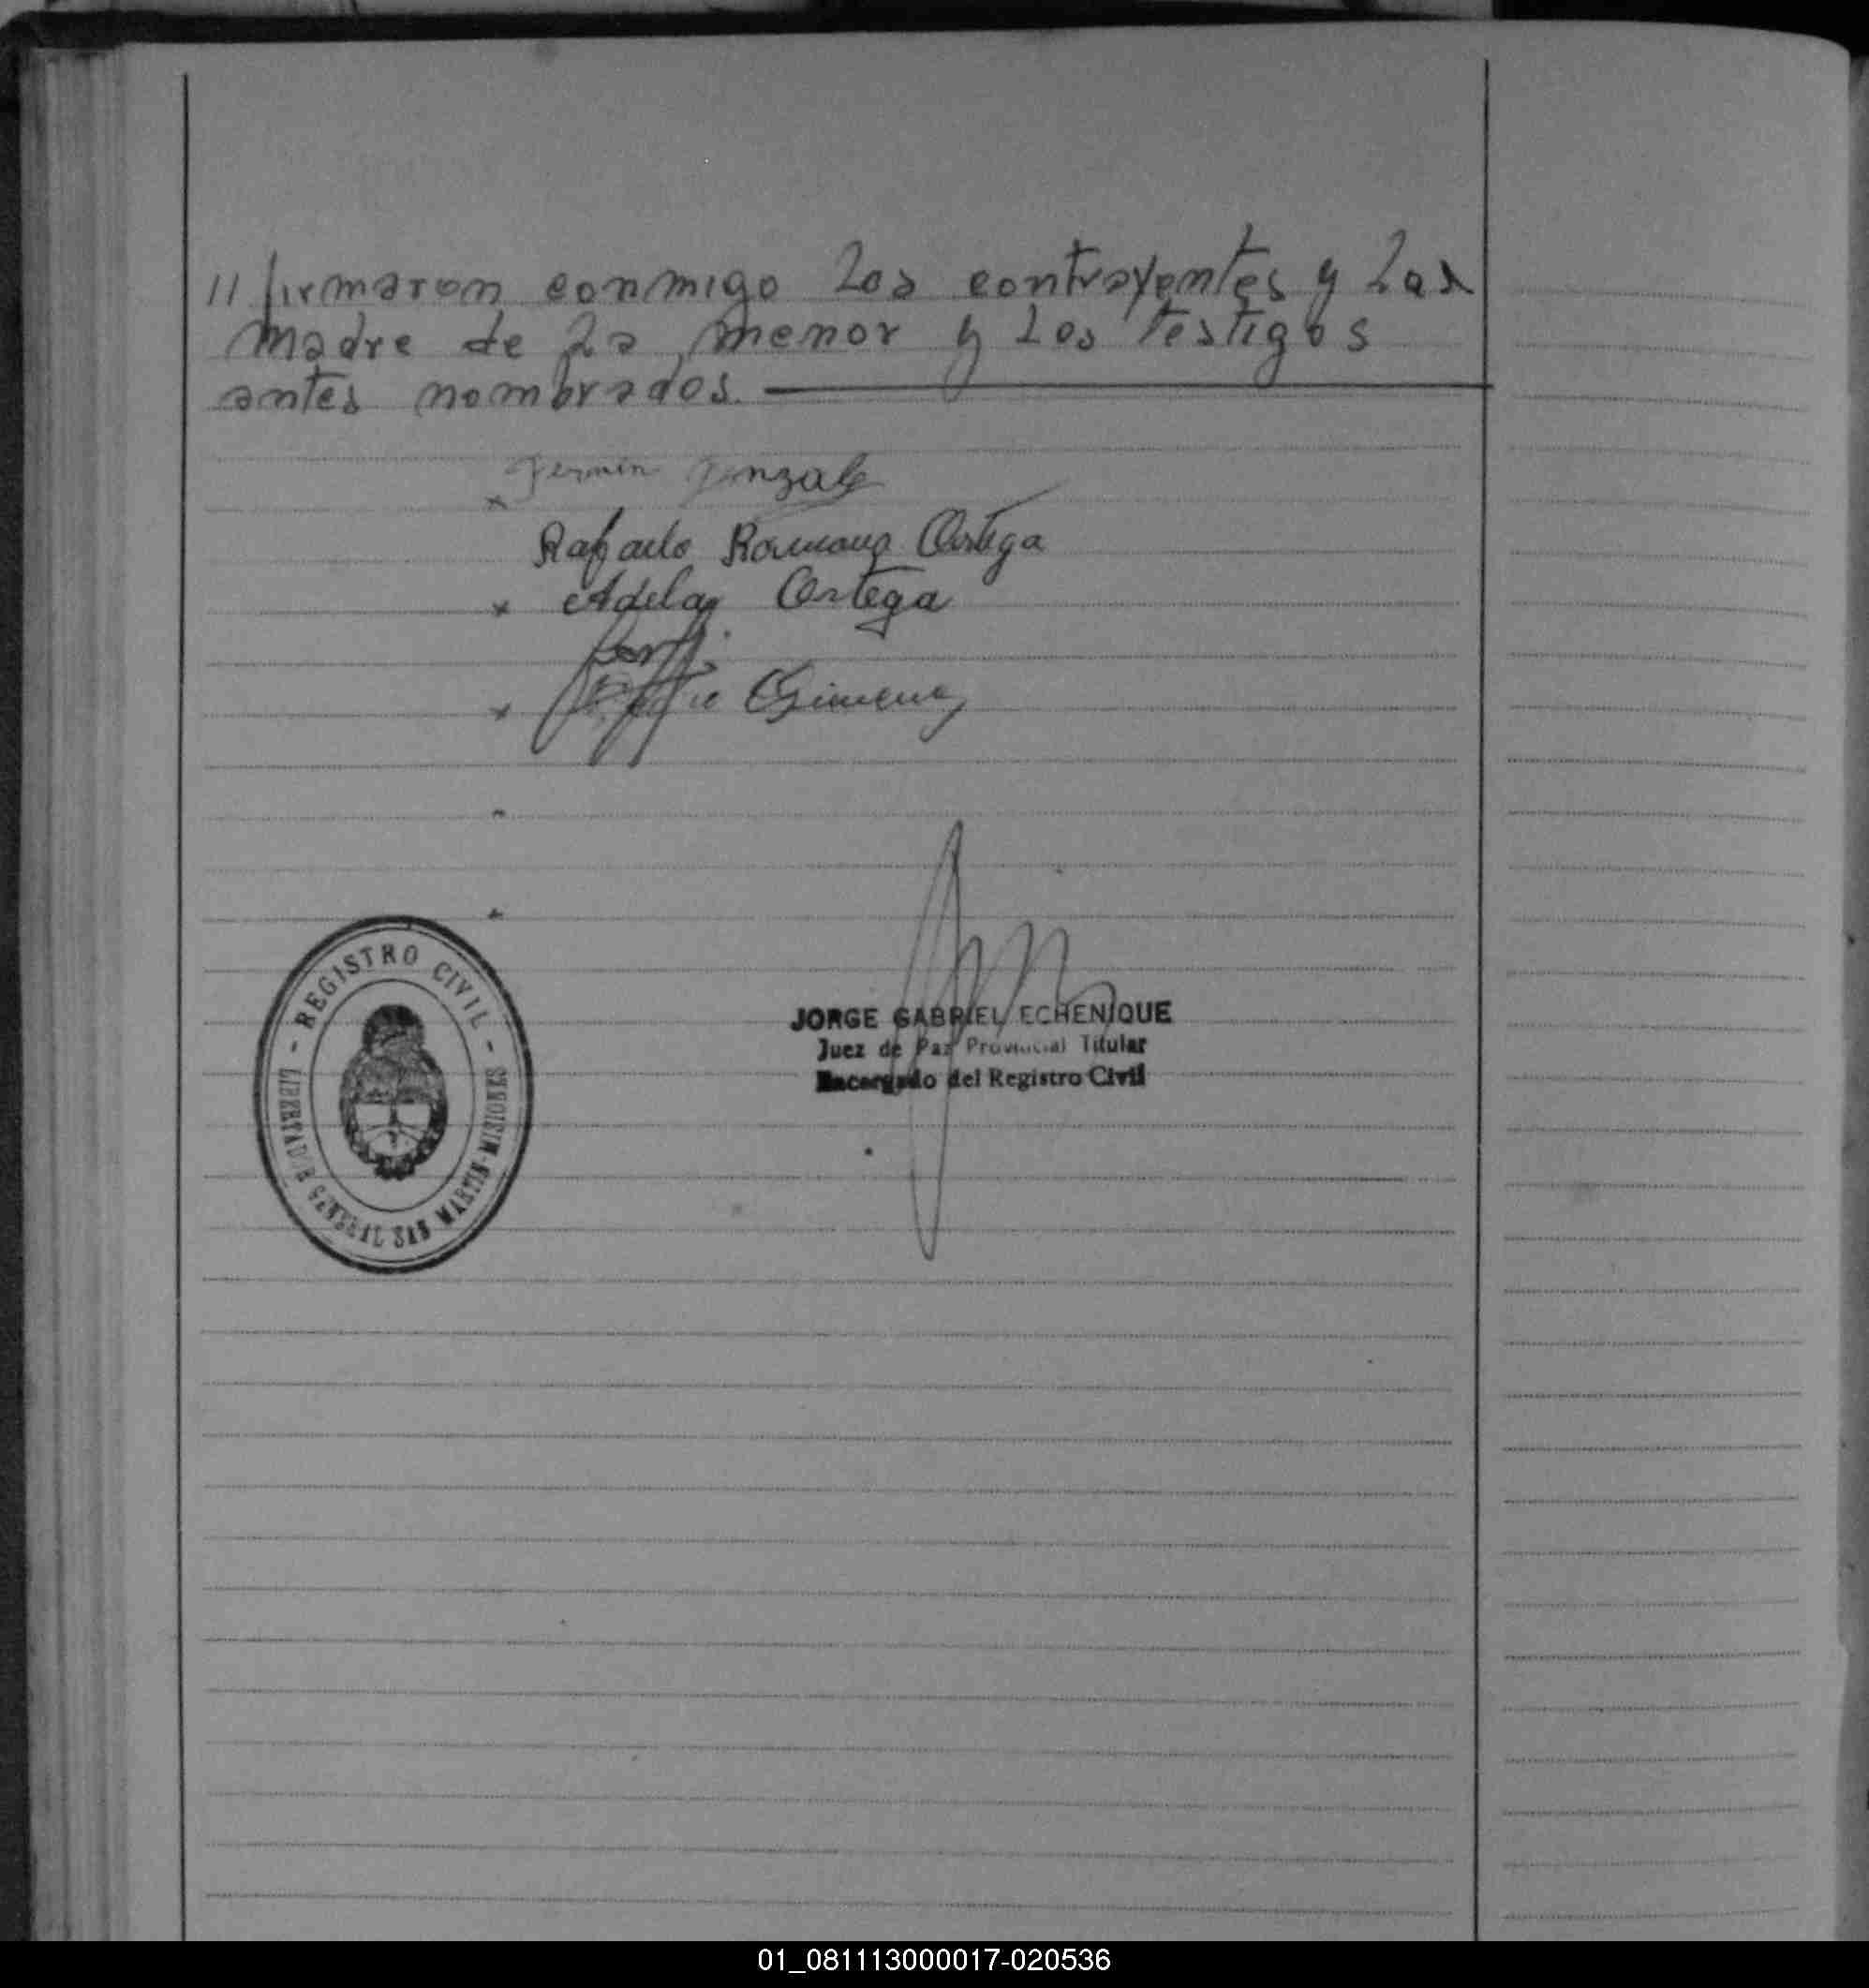 // firmaron conmigo los contrayentes y las
madre de la menor y los testigos
antes nombrados.
Fermin Gonzale
Ramona Ortega
Adela Ortega
Gimenez
REGISTRO CIVIL
LIBERTADOR GENERAL SAN MARTIN - MISIONES
JORGE GABRIEL ECHENIQUE
Juez de Paz Provincial Titular
Encargado del Registro Civil
01_081113000017-020536